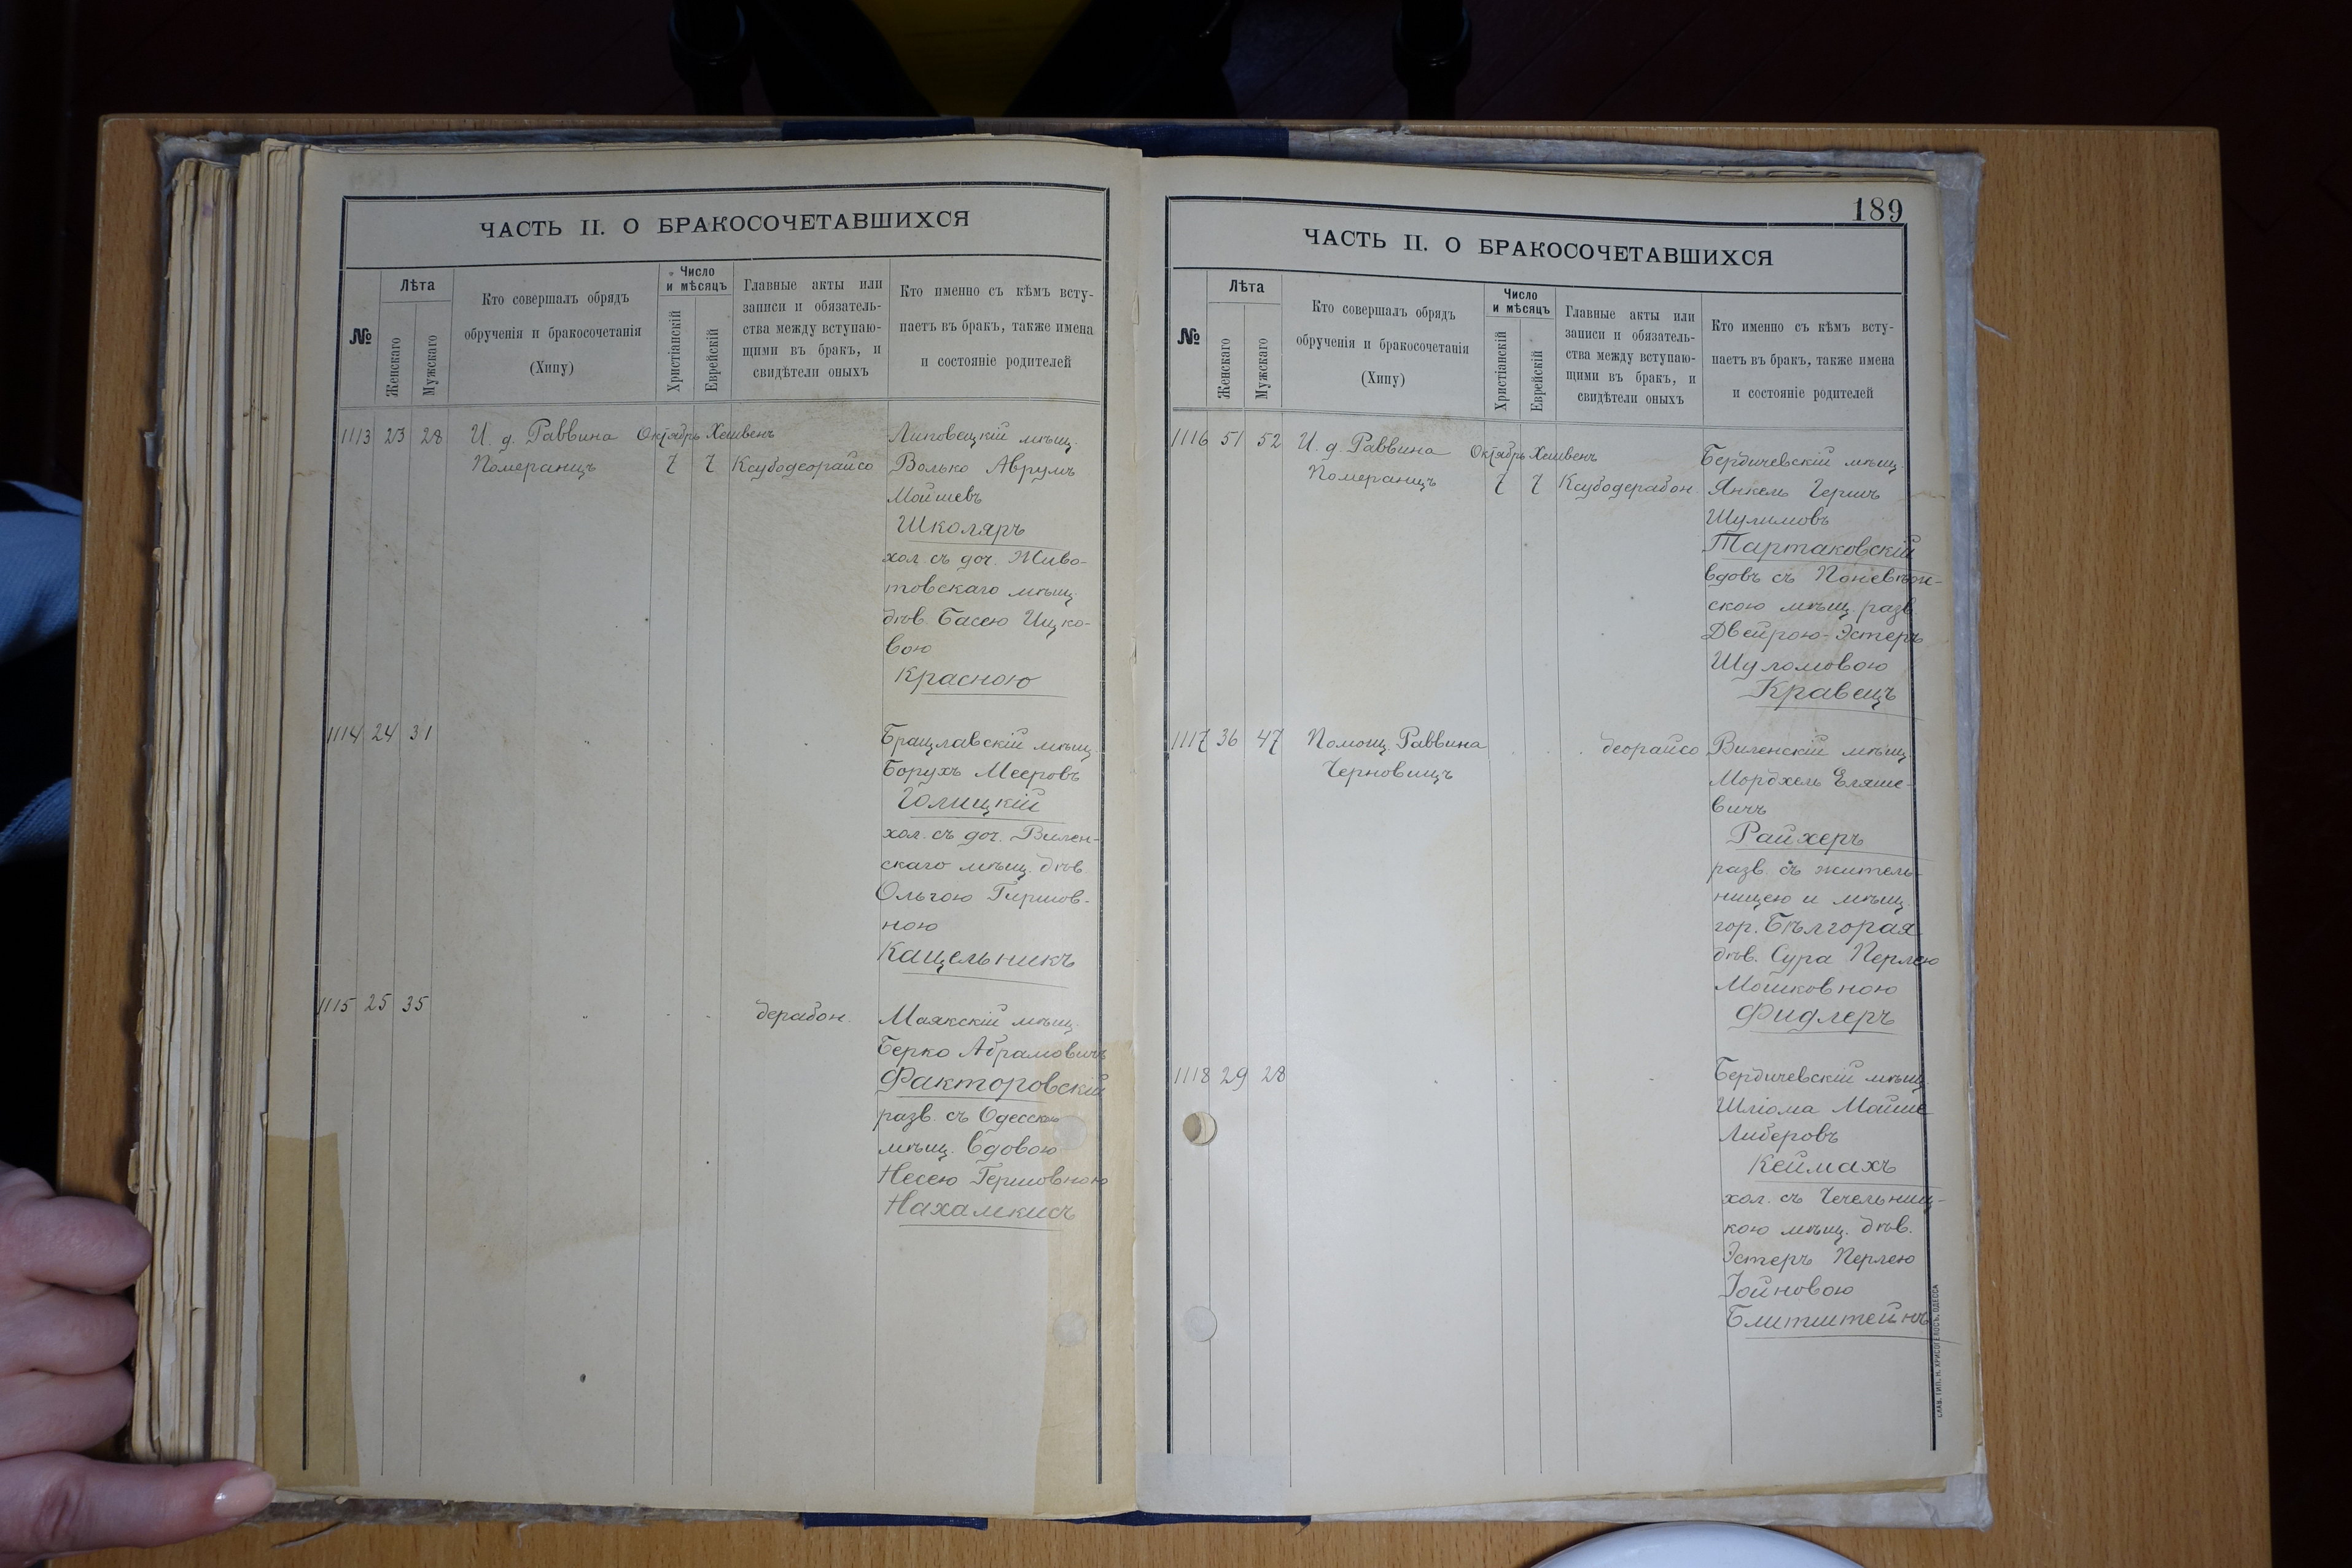 ЧАСТЬ II. О БРАКОСОЧЕТАВШИХСЯ
№
Лѣта
Женскаго
Мужскаго
Кто совершалъ обрядъ
обрученія и бракосочетанія
(Хипу)
Число
и мѣсяцъ
Христіанскій
Еврейскій
Главные акты или
записи и обязатель-
ства между вступаю-
щими въ бракъ, и
свидѣтели оныхъ
Кто именно съ кѣмъ всту-
паетъ въ бракъ, также имена
и состояніе родителей
1113 23 28 И. д. Раввина Октябрь Хешвенъ Липовецкій мѣщ.
Померанцъ 7 7 Ксубодеорайсо Волько Аврумъ
Мойшевъ
Школяръ
хол. съ доч. Живо-
товскаго мѣщ.
дѣв. Басею Ицко-
вою
Красною
1114 24 31 Брацлавскій мѣщ.
Борухъ Мееровъ
Голицкій
хол. съ доч. Вилен-
скаго мѣщ. дѣв.
Ольгою Гиршов-
ною
Кацельникъ
1115 25 35 дерабон. Маякскій мѣщ.
Берко Абрамовичъ
Факторовскій
разв. съ Одесск.
мѣщ. вдовою
Несею Гершовною
Нахамкисъ
189
ЧАСТЬ II. О БРАКОСОЧЕТАВШИХСЯ
№
Лѣта
Женскаго
Мужскаго
Кто совершалъ обрядъ
обрученія и бракосочетанія
(Хипу)
Число
и мѣсяцъ
Христіанскій
Еврейскій
Главные акты или
записи и обязатель-
ства между вступаю-
щими въ бракъ, и
свидѣтели оныхъ
Кто именно съ кѣмъ всту-
паетъ въ бракъ, также имена
и состояніе родителей
1116 51 52 И. д. Раввина Октябрь Хешвенъ Бердичевскій мѣщ.
Померанцъ 7 7 Ксубодерабон. Янкель Гершъ
Шулимовъ
Тартаковскій
вдовъ съ Поневѣж-
скою мѣщ. разв.
Двейрою-Эстеръ
Шуломовою
Кравецъ
1117 36 47 Помощ. Раввина деорайсо Виленскій мѣщ.
Черновицъ Мордхель Еляше-
вичъ
Райхеръ
разв. съ житель-
ницею и мѣщ.
гор. Бѣлгорая
дѣв. Сура Перлею
Мошковною
Фидлеръ
1118 29 28 Бердичевскій мѣщ.
Шліома Майше
Либеровъ
Кеймахъ
хол. съ Чечельниц-
кою мѣщ. дѣв.
Эстеръ Перлею
Іойновою
Блитштейнъ
СЛАВ. ТИП. Н. ХРИСОГЕЛОСЪ, ОДЕССА